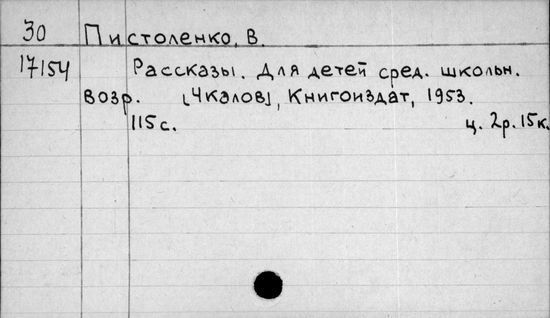 30 Пистоленко, В.
17154 Рассказы. Для детей сред. школьн.
возр. [Чкалов], Книгоиздат, 1953.
115с. ц. 2р. 15к.